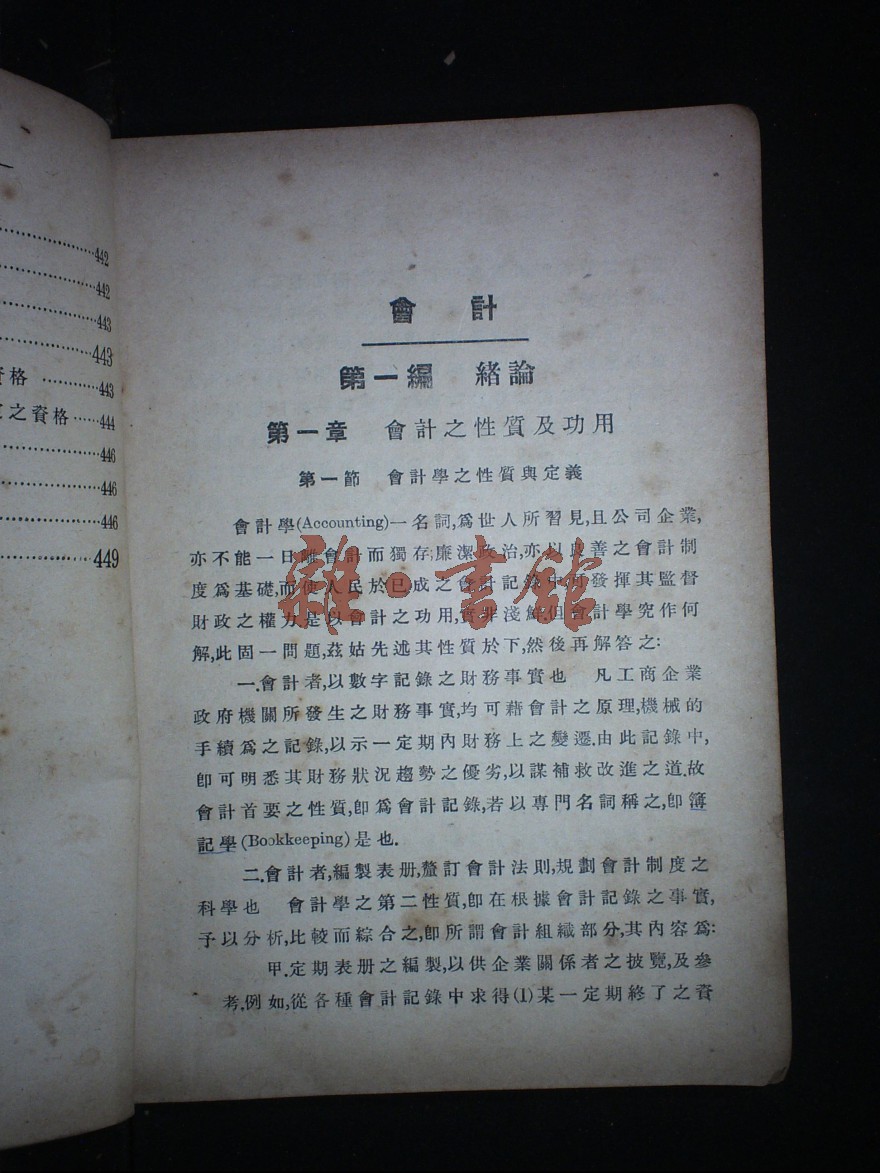 一
442
442
443
443
資格 443
之資格 444
446
446
446
449
會計
第一編 緒論
第一章 會計之性質及功用
第一節 會計學之性質與定義
會計學(Accounting)一名詞,爲世人所習見,且公司企業,
亦不能一日離會計而獨存;廉潔政治,亦以良善之會計制
度爲基礎,而使人民於已成之會計記錄中,可發揮其監督
財政之權力是以會計之功用,實非淺鮮.但會計學究作何
解,此固一問題,茲姑先述其性質於下,然後再解答之:
一.會計者,以數字記錄之財務事實也 凡工商企業
政府機關所發生之財務事實,均可藉會計之原理,機械的
手續爲之記錄,以示一定期內財務上之變遷.由此記錄中,
卽可明悉其財務狀況趨勢之優劣,以謀補救改進之道.故
會計首要之性質,卽爲會計記錄,若以專門名詞稱之,卽簿
記學(Bookkeeping)是也.
二.會計者,編製表册,釐訂會計法則,規劃會計制度之
科學也 會計學之第二性質,卽在根據會計記錄之事實,
予以分析,比較而綜合之,卽所謂會計組織部分,其內容爲:
甲.定期表册之編製,以供企業關係者之披覽,及參
考.例如,從各種會計記錄中求得(1)某一定期終了之資
雜·書館